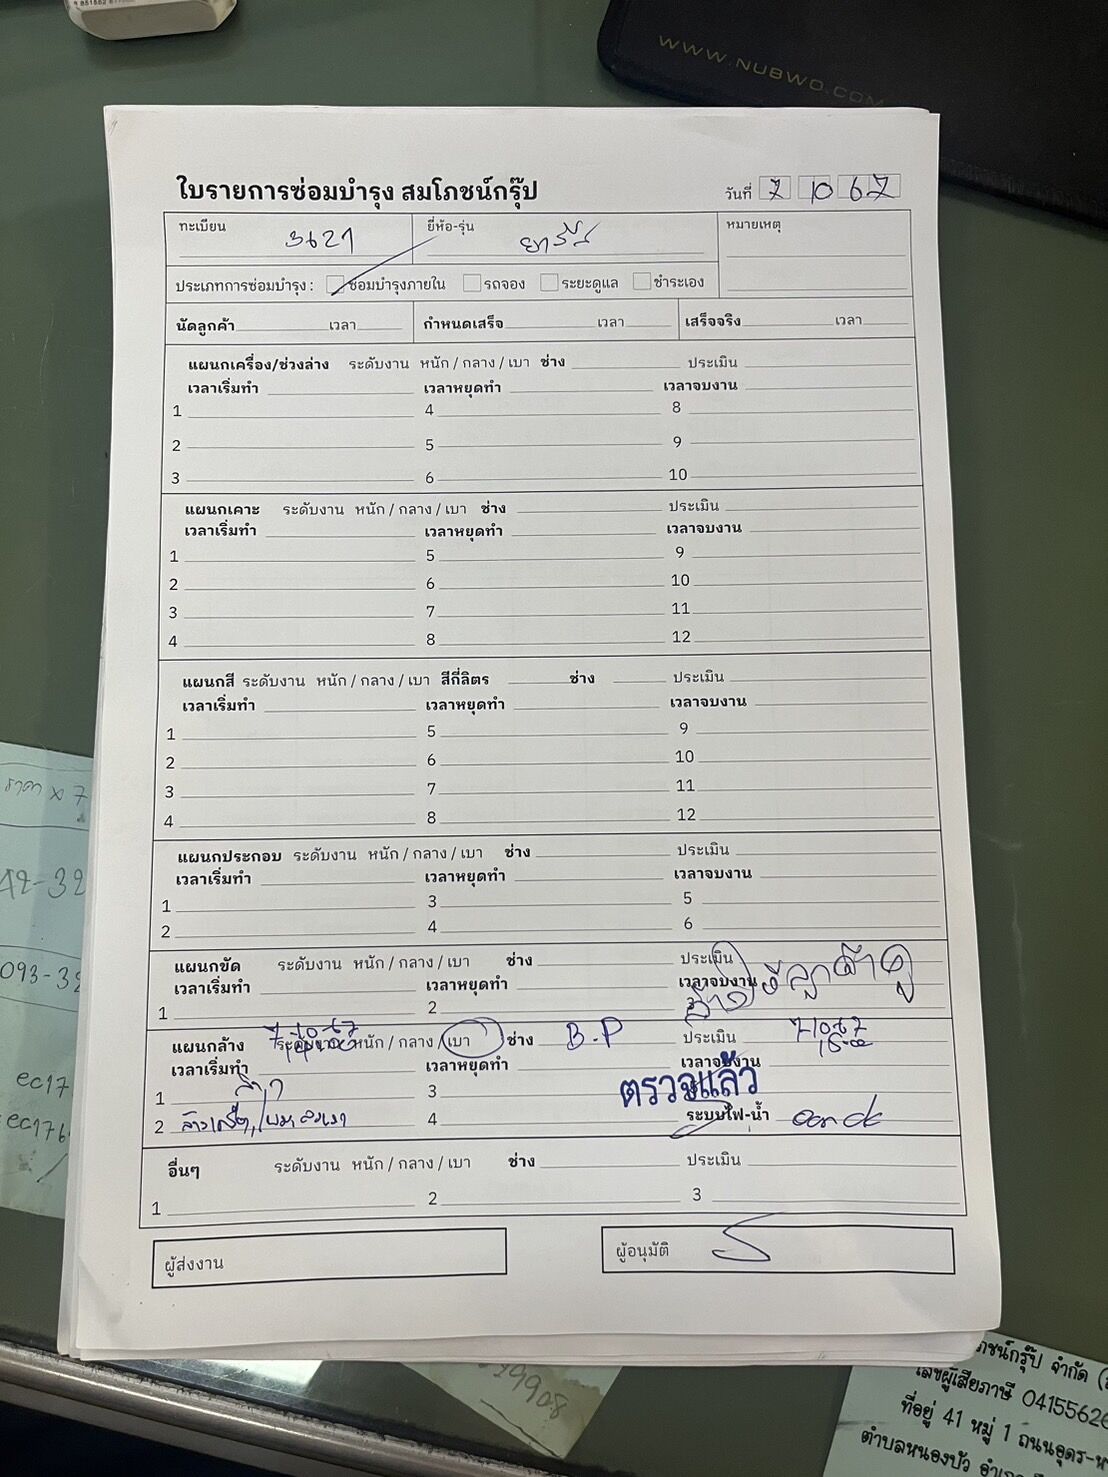 WWW.NUBWO.COM
ใบรายการซ่อมบำรุง สมโภชน์กรุ๊ป
วันที่ 7 10 67
ทะเบียน 3627 ยี่ห้อ-รุ่น ยารีส หมายเหตุ
ประเภทการซ่อมบำรุง : ซ่อมบำรุงภายใน รถจอง ระยะดูแล ชำระเอง
นัดลูกค้า เวลา กำหนดเสร็จ เวลา เสร็จจริง เวลา
แผนกเครื่อง/ช่วงล่าง ระดับงาน หนัก / กลาง / เบา ช่าง ประเมิน
เวลาเริ่มทำ เวลาหยุดทำ เวลาจบงาน
1 4 8
2 5 9
3 6 10
แผนกเคาะ ระดับงาน หนัก / กลาง / เบา ช่าง ประเมิน
เวลาเริ่มทำ เวลาหยุดทำ เวลาจบงาน
1 5 9
2 6 10
3 7 11
4 8 12
แผนกสี ระดับงาน หนัก / กลาง / เบา สีกี่ลิตร ช่าง ประเมิน
เวลาเริ่มทำ เวลาหยุดทำ เวลาจบงาน
1 5 9
2 6 10
3 7 11
4 8 12
แผนกประกอบ ระดับงาน หนัก / กลาง / เบา ช่าง ประเมิน
เวลาเริ่มทำ เวลาหยุดทำ เวลาจบงาน
1 3 5
2 4 6
แผนกขัด ระดับงาน หนัก / กลาง / เบา ช่าง ประเมิน
เวลาเริ่มทำ เวลาหยุดทำ เวลาจบงาน
1 2 3
แผนกล้าง 7-10-67 ระดับงาน หนัก / กลาง / เบา ช่าง B.P ประเมิน 7-10-67
เวลาเริ่มทำ เวลาหยุดทำ เวลาจบงาน 15-00
1 3 ตรวจแล้ว
2 4 ระบบไฟ-น้ำ
อื่นๆ ระดับงาน หนัก / กลาง / เบา ช่าง ประเมิน
1 2 3
ผู้ส่งงาน ผู้อนุมัติ
ราคา x 7
42-32
093-32
ec17
ec176
99908
ภชน์กรุ๊ป จำกัด
เลขผู้เสียภาษี 04155626
ที่อยู่ 41 หมู่ 1 ถนนอุดร-ห
ตำบลหนองบัว